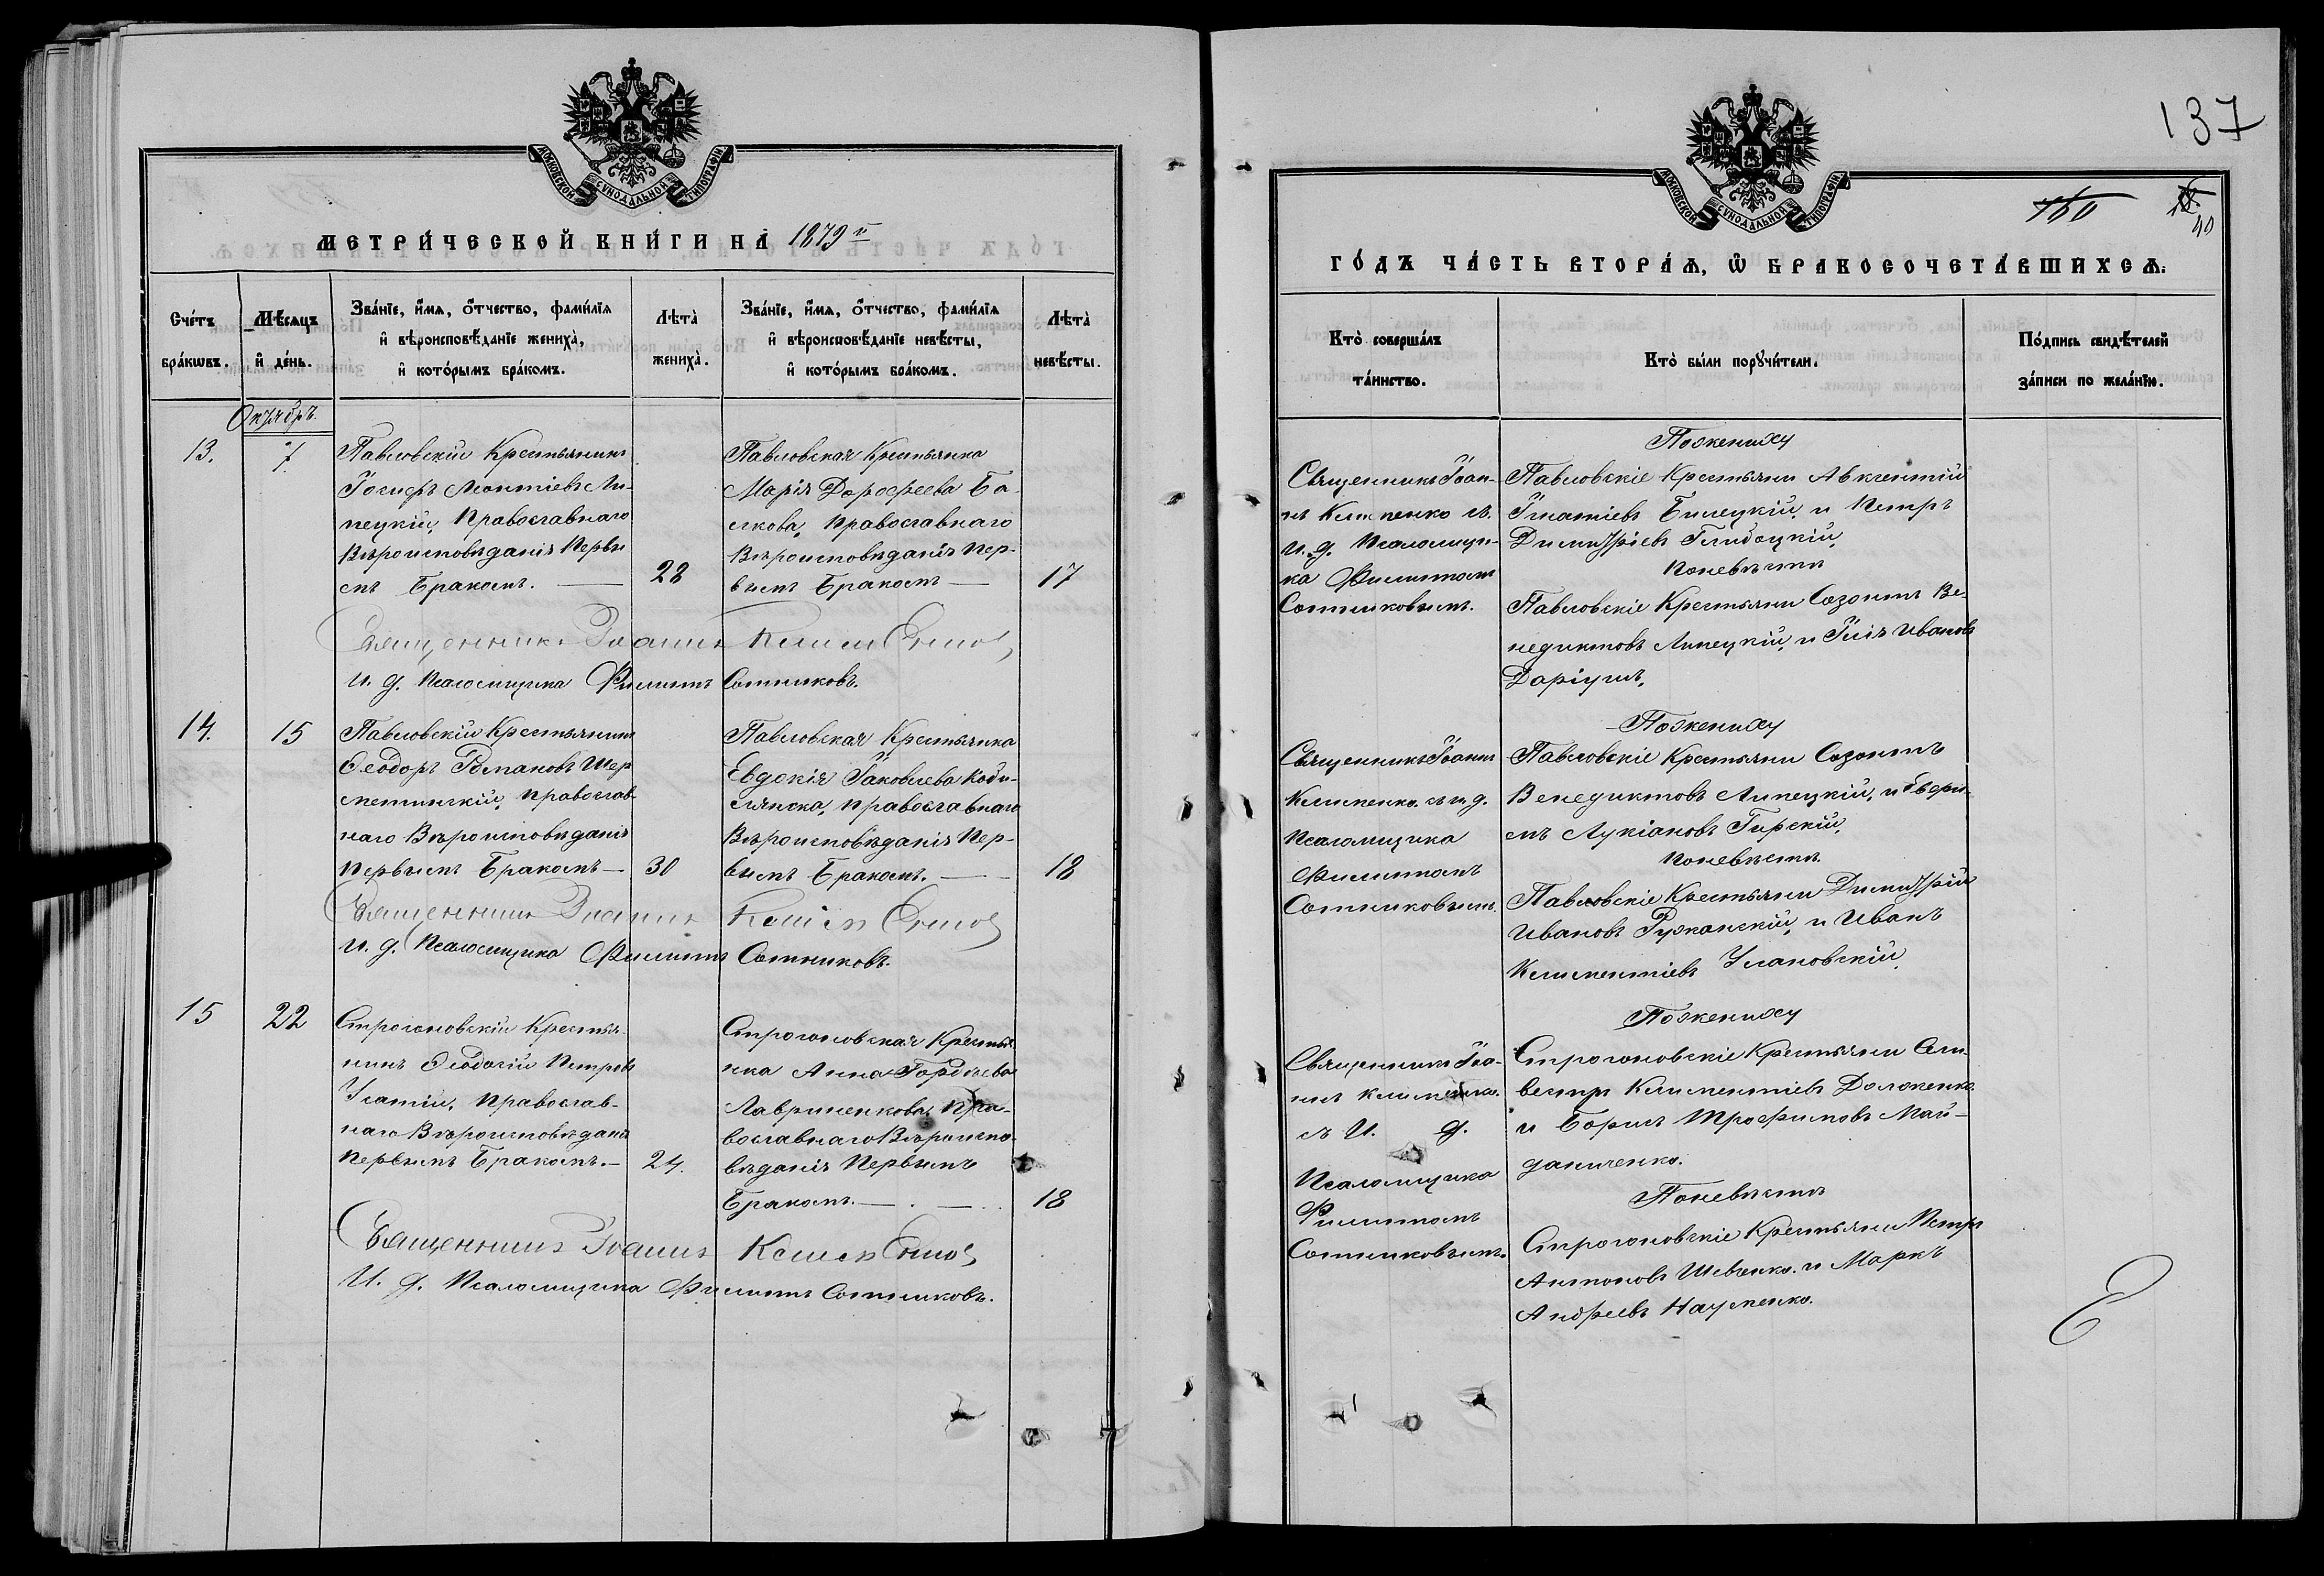 МОСКОВСКОЙ СѴНОДАЛЬНОЙ ТИПОГРАФІИ
МЕТРИ́ЧЕСКОЙ КНИ́ГИ НА̀ 1879 й
Сче́тъ бра́кѡвъ.
Мѣ́сяцъ и҆ де́нь.
Зва́нїе, и҆́мѧ, ѻ҆́тчество, фами́лїѧ
и҆ вѣроисповѣ́данїе жениха̀,
и҆ кото́рымъ бра́комъ.
Лѣта̀ жениха̀.
Зва́нїе, и҆́мѧ, ѻ҆́тчество, фами́лїѧ
и҆ вѣроисповѣ́данїе невѣ́сты,
и҆ кото́рымъ бра́комъ.
Лѣта̀ невѣ́сты.
Октябрь.
13.
7
Павловскій Крестьянинъ
Іосифъ Леонтіевъ Ли-
пецкій, Православнаго
Вѣроисповѣданія Первы
мъ Бракомъ.
28
Павловская Крестьянка
Марія Дорофеева
Православнаго
Вѣроисповѣданія Пер-
вымъ Бракомъ
17
Священникъ Іоаннъ Клименко
И. д. Псаломщика Филиппъ Сотниковъ.
14.
15
Павловскій Крестьянинъ
Ѳеодоръ Романовъ Шер
метинскій, Православ-
наго Вѣроисповѣданія
Первымъ Бракомъ
30
Павловская Крестьянка
Евдокія Іаковлева Коби-
лянска, Православнаго
Вѣроисповѣданія Пер-
вымъ Бракомъ.
18
Священникъ Іоаннъ Клименко
И. д. Псаломщика Филиппъ Сотниковъ.
15
22
Строгоновскій Крестья
нинъ Ѳеодосій Петровъ
Усатій, Православ-
наго Вѣроисповѣданія
Первымъ Бракомъ.
24.
Строгоновская Крестья
нка Анна Гордѣева
Лавриненкова, Пра-
вославнаго Вѣроиспо-
вѣданія Первымъ
Бракомъ.
18
Священникъ Іоаннъ Клименко
И. д. Псаломщика Филиппъ Сотниковъ.
137
МОСКОВСКОЙ СѴНОДАЛЬНОЙ ТИПОГРАФІИ
40
ГО́ДЪ ЧА́СТЬ ВТОРА́Ѧ, Ѽ БРАКОСОЧЕТА́ВШИХСѦ.
Кто̀ соверша́лъ
та́инство.
Кто̀ бы́ли порꙋчи́тели.
По́дпись свидѣ́телей
за́писи по жела́нїю.
Священникъ Іоан-
нъ Клименко съ
и. д. Псаломщи-
ка Филиппомъ
Сотниковымъ.
По жениху
Павловскіе Крестьяни Авксентій
Игнатіевъ Билецкій, и Петръ
Димитріевъ Глибоцкій,
По невѣстѣ
Павловскіе Крестьяни Созонтъ Ве-
недиктовъ Липецкій, и Илія Ивановъ
Даріушъ,
Священникъ Іоаннъ
Клименко. съ и д.
Псаломщика
Филиппомъ
Сотниковымъ.
По жениху
Павловскіе Крестьяни Созонтъ
Венедиктовъ Липецкій, и Ефри-
мъ Лукіановъ Гирскій,
По невѣстѣ.
Павловскіе Крестьяни Димитрій
Ивановъ Ружанскій, и Иванъ
Климентіевъ Улановскій,
Священникъ Іоа-
ннъ Клименко.
съ И. д.
Псаломщика
Филиппомъ
Сотниковымъ.
По жениху
Строгоновскіе Крестьяни Сель-
вестръ Климентіевъ Доложенко
и Борисъ Трофимовъ Май-
даниченко.
По невѣстѣ
Строгоновскіе Крестьяни Петръ
Антоновъ Шевченко. и Маркъ
Андреевъ Науменко.